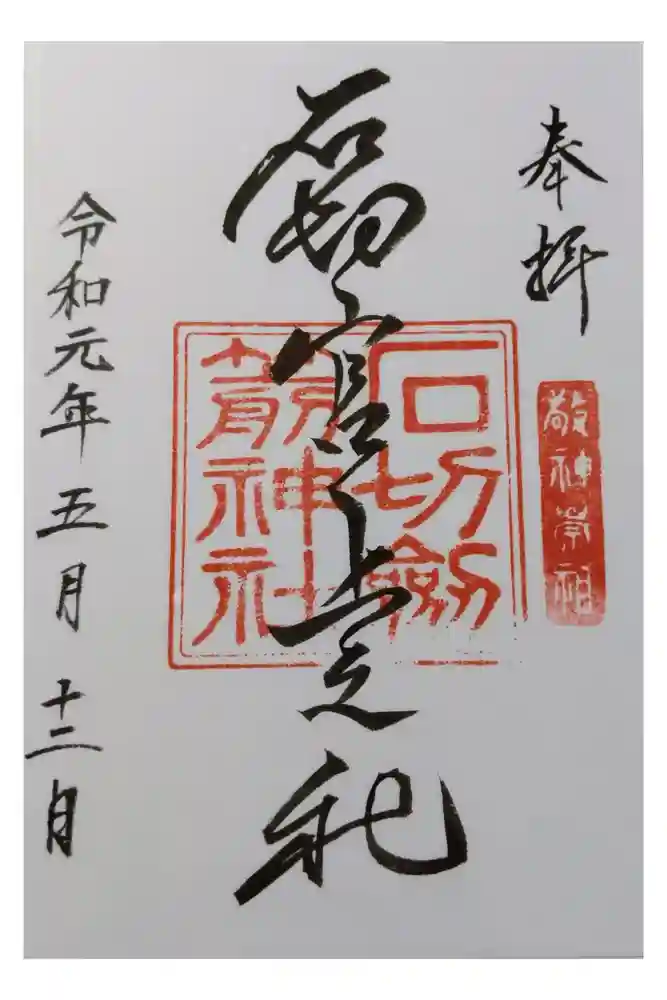 奉拝
敬神崇祖
石切宮上之社
石切劔箭神社
令和元年五月十二日